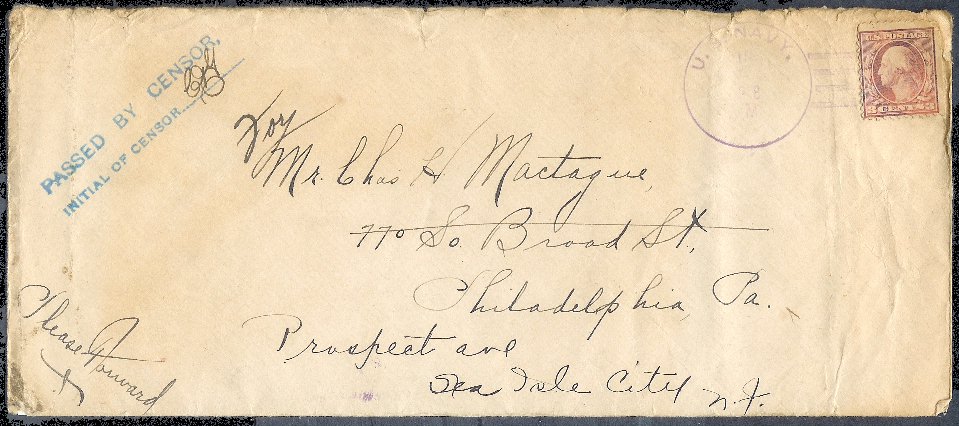 PASSED BY CENSOR.
INITIAL OF CENSOR
U.S. NAVY.
U.S. POSTAGE
For
Mr. Chas H Mactague,
770 So. Broad St,
Philadelphia, Pa.
Prospect ave
Sea Isle City N.J.
Please Forward